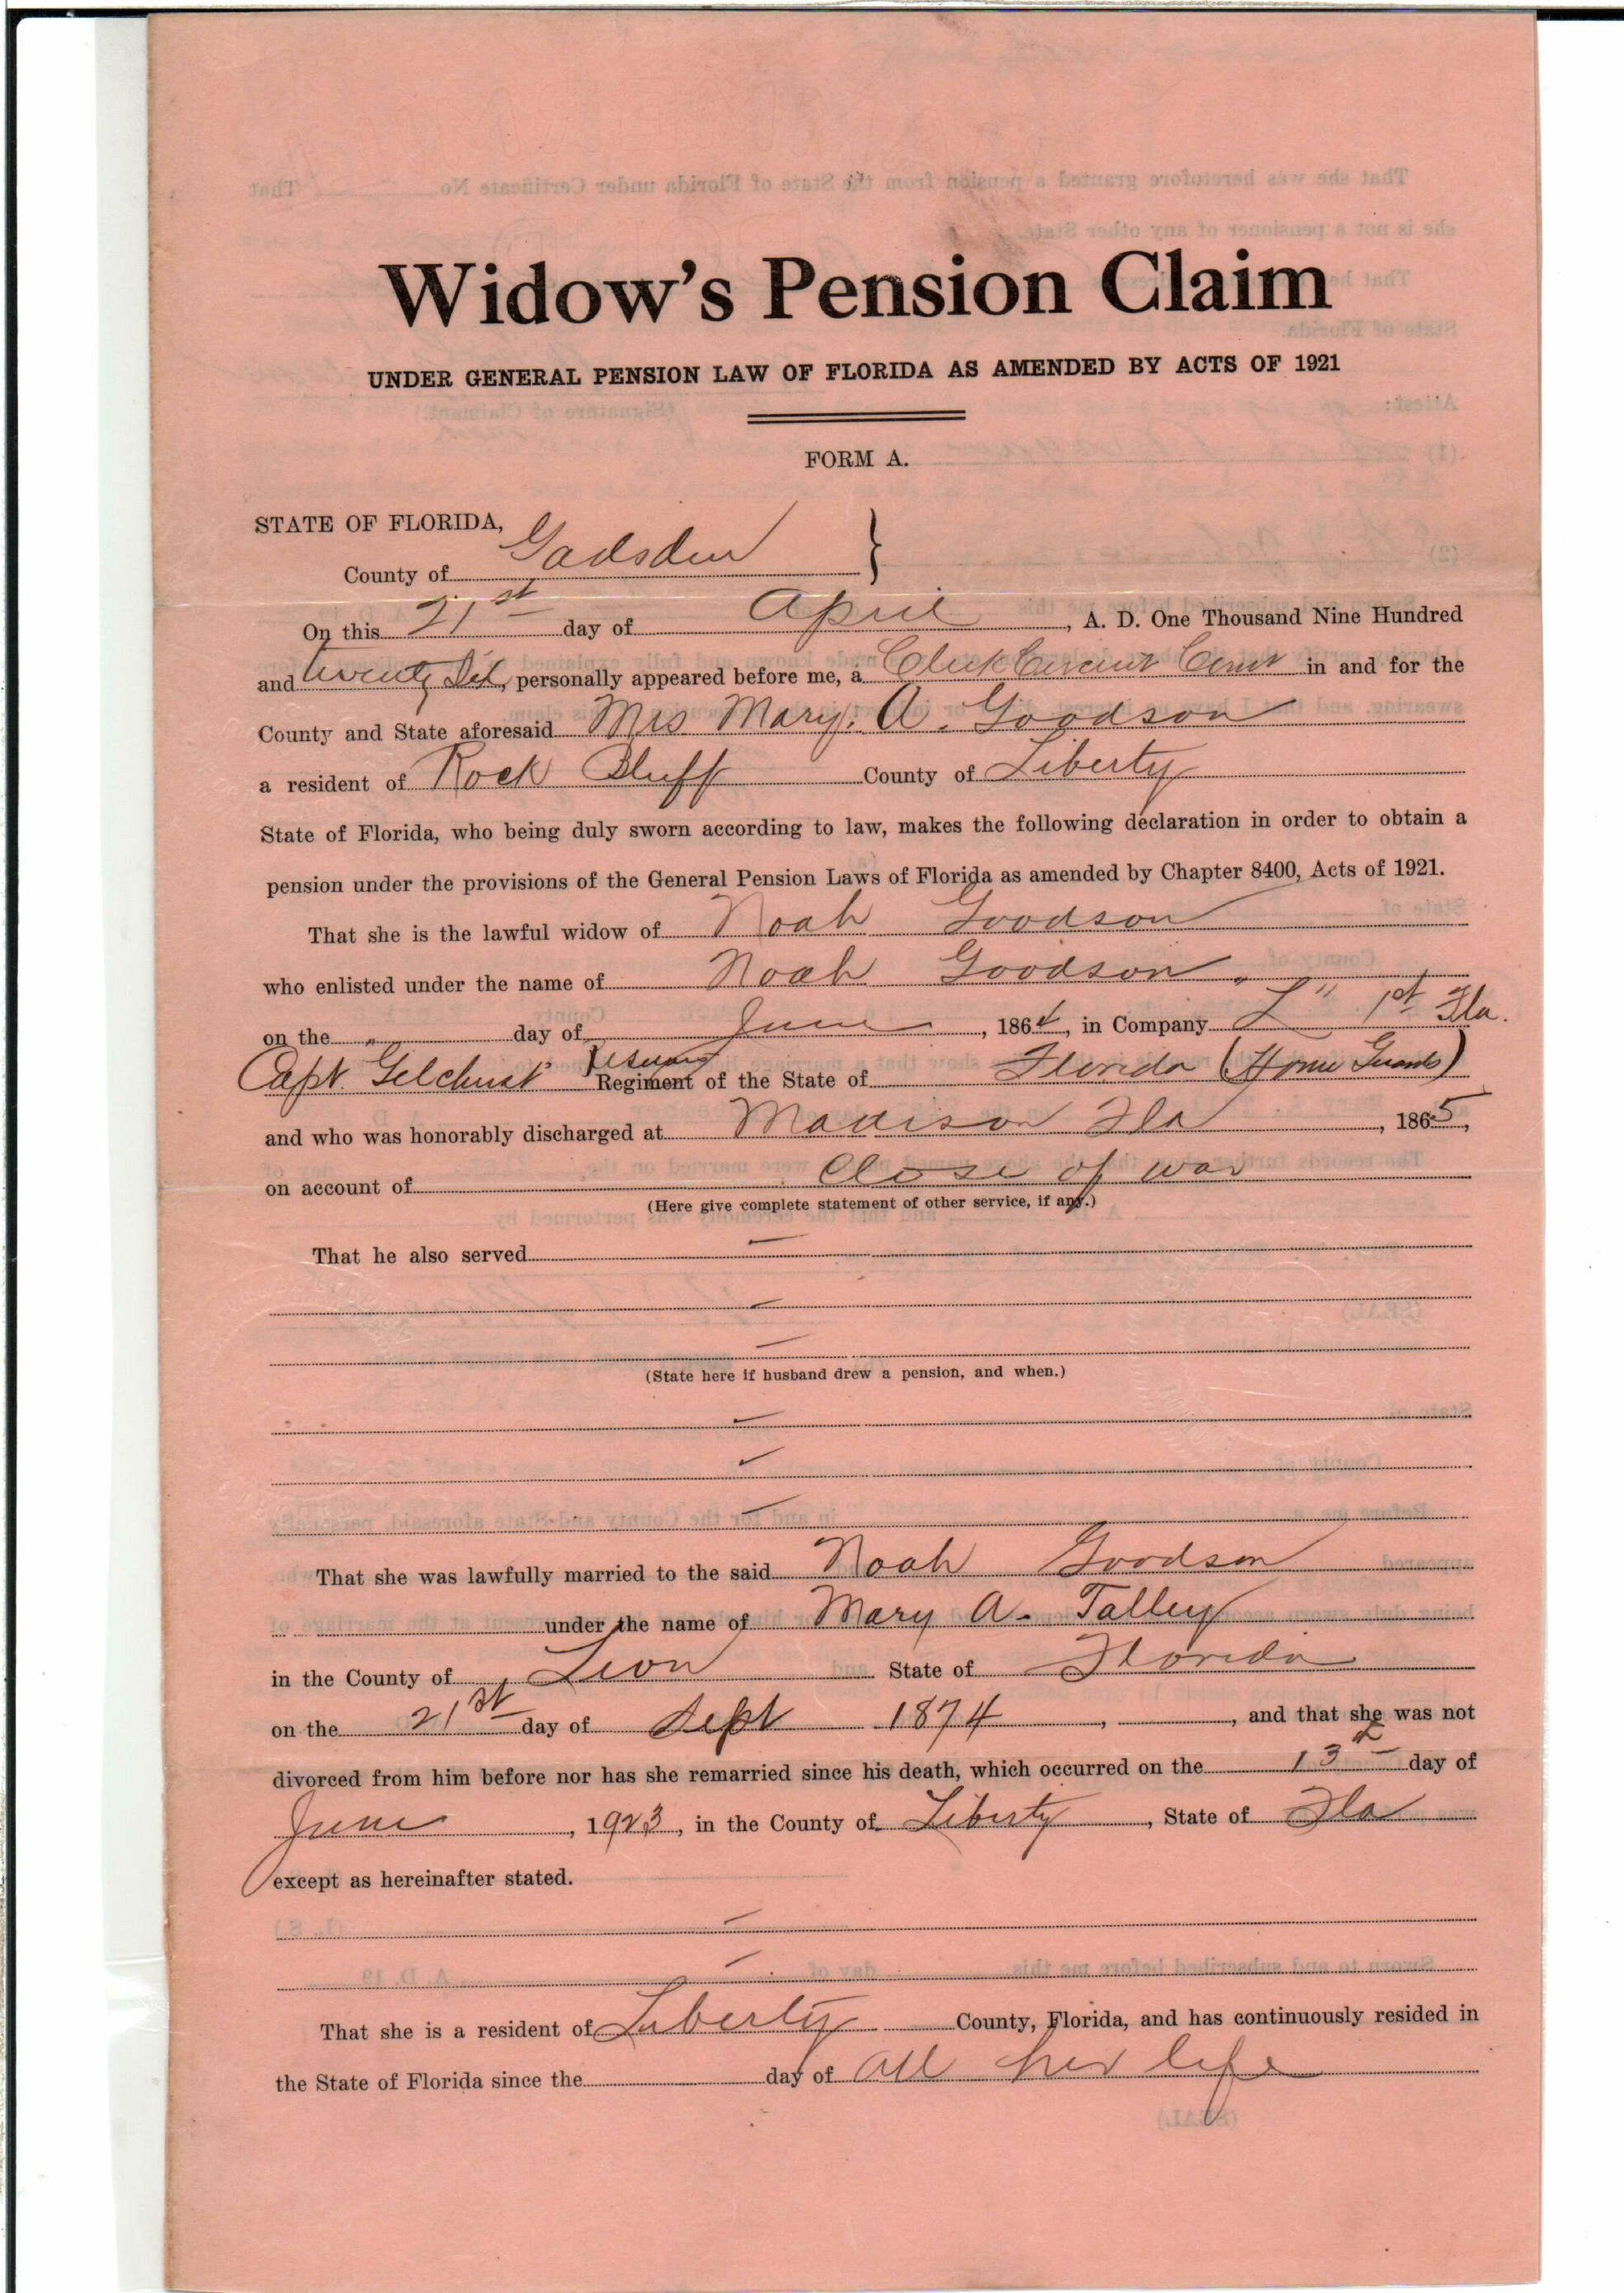 Widow's Pension Claim
UNDER GENERAL PENSION LAW OF FLORIDA AS AMENDED BY ACTS OF 1921
FORM A.
STATE OF FLORIDA,
County of Gadsden }
On this 21st day of April, A. D. One Thousand Nine Hundred
and twenty Six, personally appeared before me, a Clerk Circuit Court in and for the
County and State aforesaid Mrs Mary. A. Goodson
a resident of Rock Bluff County of Liberty
State of Florida, who being duly sworn according to law, makes the following declaration in order to obtain a
pension under the provisions of the General Pension Laws of Florida as amended by Chapter 8400, Acts of 1921.
That she is the lawful widow of Noah Goodson
who enlisted under the name of Noah Goodson
on the " day of June, 1864, in Company "L" 1st Fla.
Capt. Gilchrist Reserves Regiment of the State of Florida (Home Guards)
and who was honorably discharged at Madison Fla, 1865,
on account of Close of war
(Here give complete statement of other service, if any.)
That he also served —
—
—
(State here if husband drew a pension, and when.)
—
—
—
That she was lawfully married to the said Noah Goodson
under the name of Mary A. Talley
in the County of Leon State of Florida
on the 21st day of Sept 1874, , and that she was not
divorced from him before nor has she remarried since his death, which occurred on the 13th day of
June, 1923, in the County of Liberty, State of Fla
except as hereinafter stated.
—
—
That she is a resident of Liberty County, Florida, and has continuously resided in
the State of Florida since the day of all her life